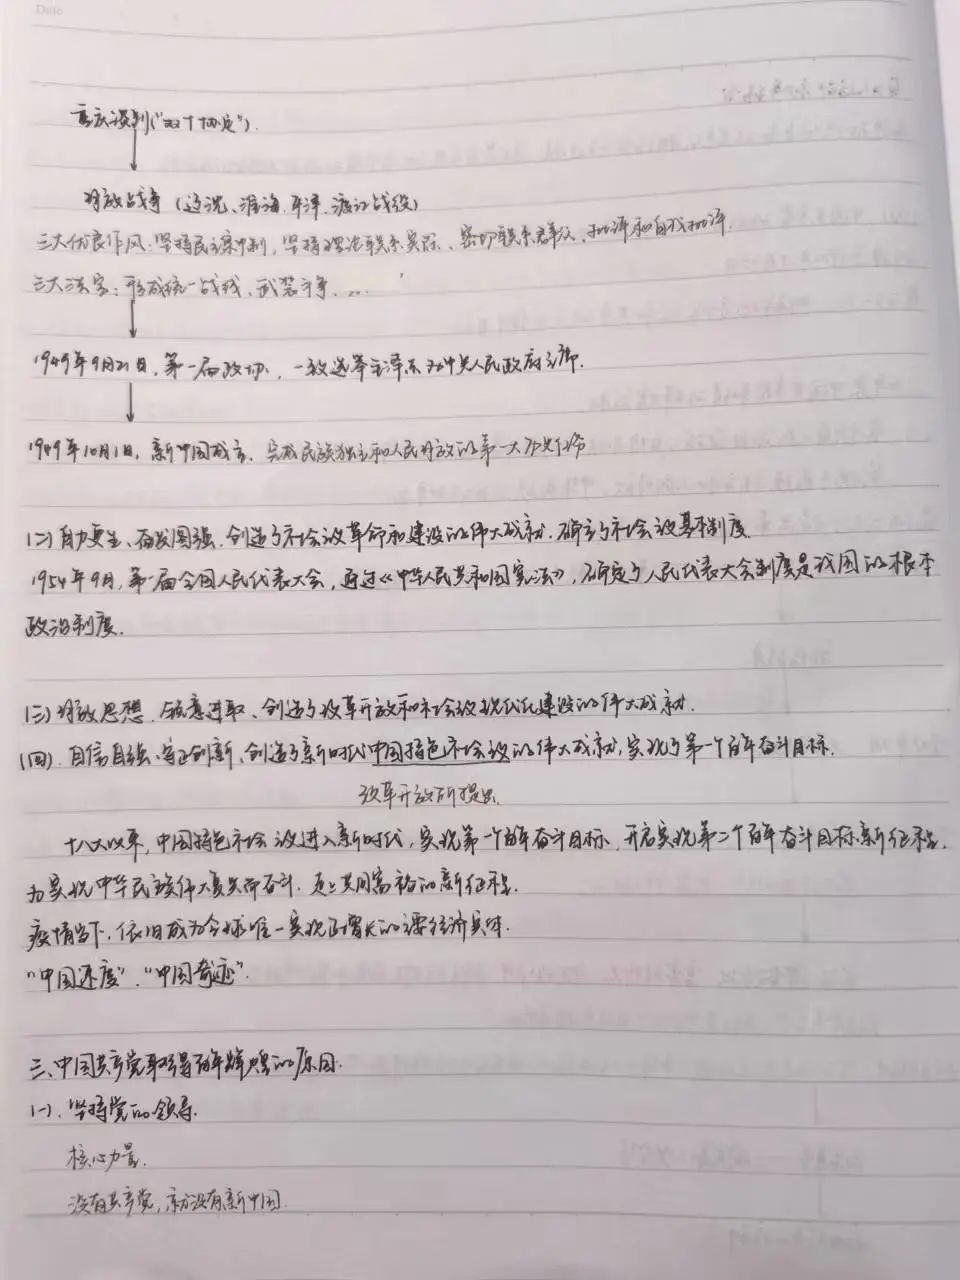 Date
重庆谈判("双十协定").
解放战争(辽沈、淮海、平津、渡江战役)
三大优良作风:坚持民主集中制,坚持理论联系实际、密切联系群众、批评和自我批评.
三大法宝:形成统一战线、武装斗争、...
1949年9月21日,第一届政协,一致选举毛泽东为中央人民政府主席.
1949年10月1日,新中国成立、完成民族独立和人民解放的第一大历史任务
(二)自力更生、奋发图强、创造了社会主义革命和建设的伟大成就.确立了社会主义基本制度.
1954年9月,第一届全国人民代表大会,通过《中华人民共和国宪法》,确定了人民代表大会制度是我国的根本
政治制度.
(三)解放思想、锐意进取、创造了改革开放和社会主义现代化建设的伟大成就.
(四).自信自强、守正创新、创造了新时代中国特色社会主义的伟大成就,实现了第一个百年奋斗目标.
改革开放所提出.
十八大以来,中国特色社会主义进入新时代,实现第一个百年奋斗目标,开启实现第二个百年奋斗目标新征程.
为实现中华民族伟大复兴而奋斗.走上共同富裕的新征程.
疫情当下,依旧成为全球唯一实现正增长的主要经济实体.
"中国速度"、"中国奇迹".
三、中国共产党取得百年辉煌的原因.
(一).坚持党的领导.
核心力量.
没有共产党,就没有新中国.